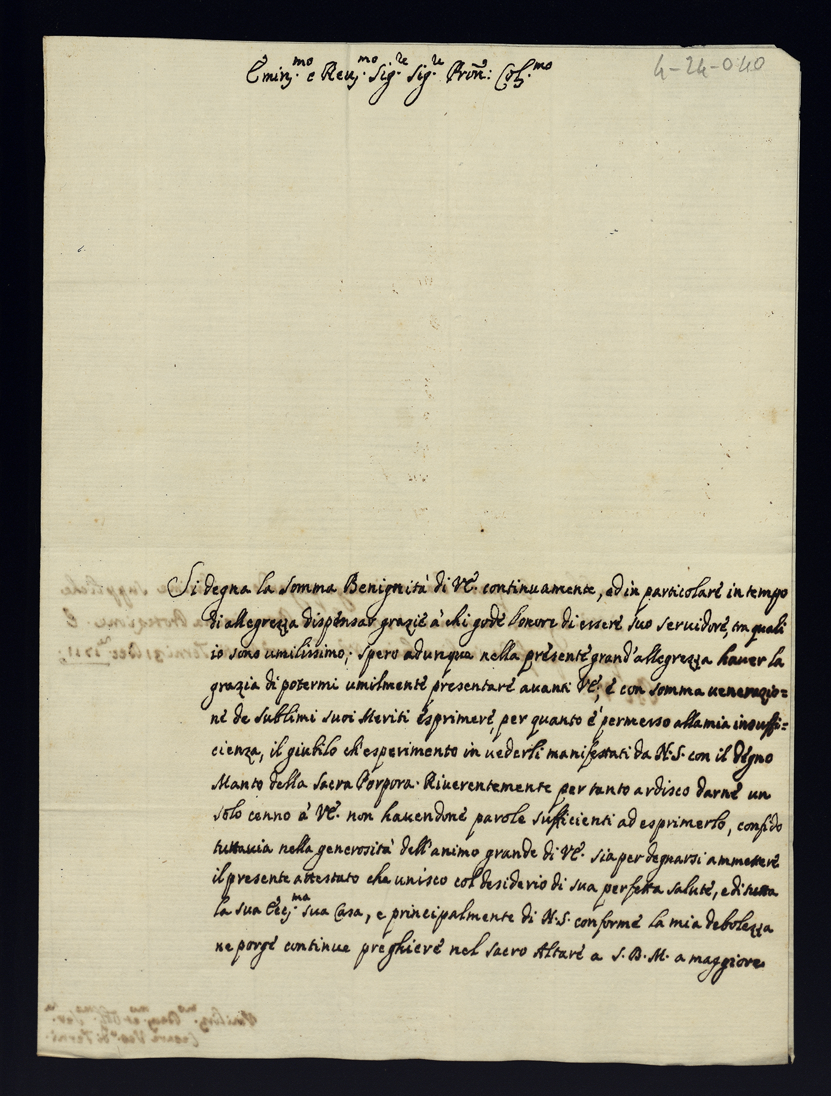 Emin.mo e Reu.mo Sig.re Sig.re Pron: Col.mo
4-24-040
Si degna la somma Benignità di VE. continuamente, ed in particolare in tempo
di allegrezza dispensar grazie à chi gode l'onore di essere suo servidore, tra quali
io sono umilissimo; spero adunqua nella presente grand'allegrezza hauer la
grazia di potermi umilmente presentare auanti VE; e con somma uenerazio=
ne de sublimi suoi Meriti esprimere, per quanto è permesso alla mia insuffi=
cienza, il giubilo ch'esperimento in uederli manifestati da N.S. con il degno
Manto della Sacra Porpora. Riuerentemente per tanto ardisco darne un
solo cenno à VE. non hauendone parole sufficienti ad esprimerlo, confido
tuttauia nella generosità dell'animo grande di VE. sia per degnarsi ammettere
il presente attestato che unisco col desiderio di sua perfetta salute, e di tutta
la sua Ecc.ma sua Casa, e principalmente di N.S. conforme la mia debolezza
ne porge continue preghiere nel sacro Altare a S.B.M. a maggiore